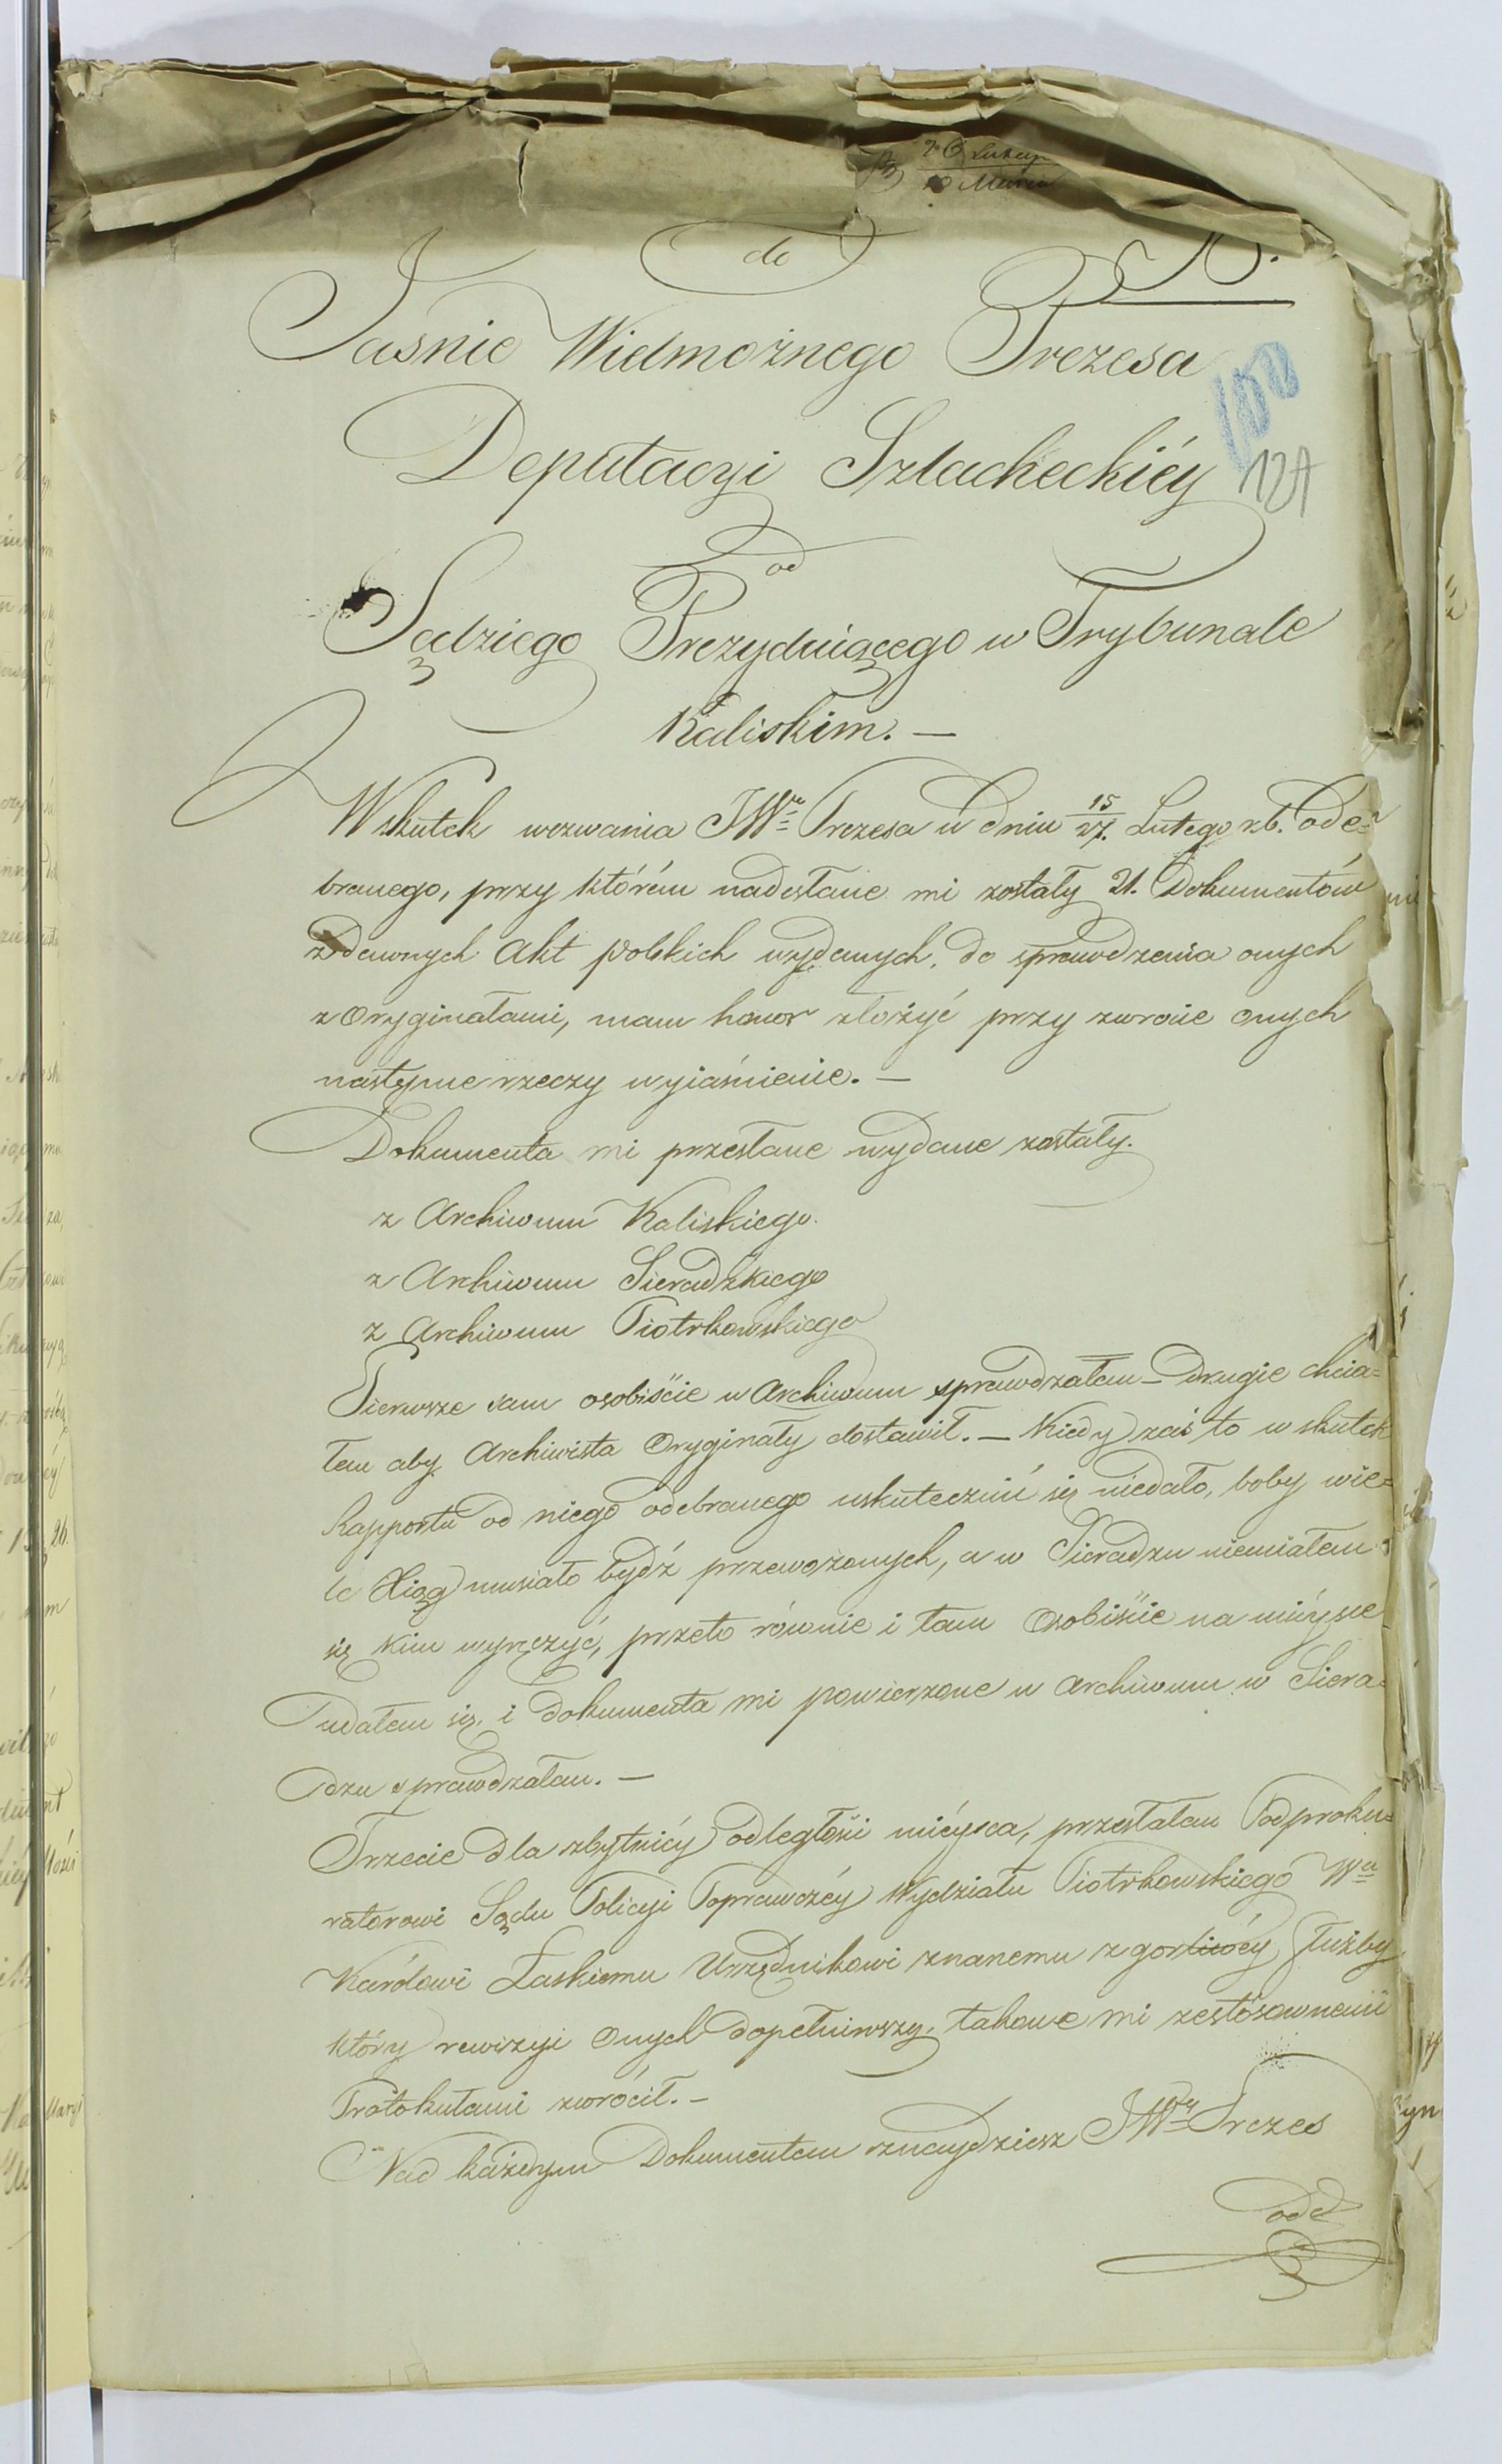 do
Jaśnie Wielmożnego Prezesa
100
Deputacyi Szlacheckiéy
124
od
Sędziego Prezyduiącego w Trybunale
Kaliskim. —
Wskutek wezwania JWgo Prezesa w dniu 15/27. Lutego rb. ode=
branego, przy którém nadesłane mi zostały 21. Dokumentów
z dawnych Akt polskich wydanych, do sprawdzenia onych
z Oryginałami, mam honor złożyć przy zwrocie onych
następne rzeczy wyiaśnienie. —
Dokumenta mi przesłane wydane zostały.
z Archiwum Kaliskiego.
z Archiwum Sieradzkiego
z Archiwum Piotrkowskiego
Pierwsze sam osobiście w Archiwum sprawdzałem — Drugie chcia=
łem aby Archiwista Oryginały dostawił. — Kiedy zaś to w skutek
Rapportu od niego odebranego uskutecznić się niedało, boby wie=
le Xiąg musiało bydź przewożonych, a w Sieradzu niemiałem
się kim wyręczyć, przeto równie i tam Osobiście na miéysce
udałem się, i Dokumenta mi powierzone w Archiwum w Siera=
dzu sprawdzałam. —
Trzecie dla zbytniéy odległości miéysca, przesłałem Podproku=
ratorowi Sądu Policyi Poprawczéy Wydziału Piotrkowskiego Wu
Karólowi Łaskiemu Urzędnikowi znanemu z gorliwéy służby
który rewizyi Onych dopełniwszy, takowe mi ze stosownemi
Protokułami zwrócił. —
Nad każdym Dokumentem znaydziesz JWny Prezes
ode